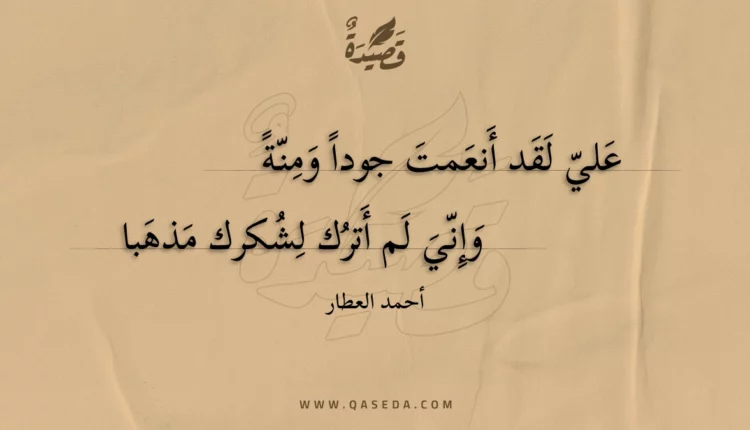 قَصِيْدَةٌ
عَليّ لَقَد أَنعَمتَ جوداً وَمِنّةً
وَإِنّيَ لَم أَترُك لِشُكرك مَذهَبا
أحمد العطار
WWW.QASEDA.COM